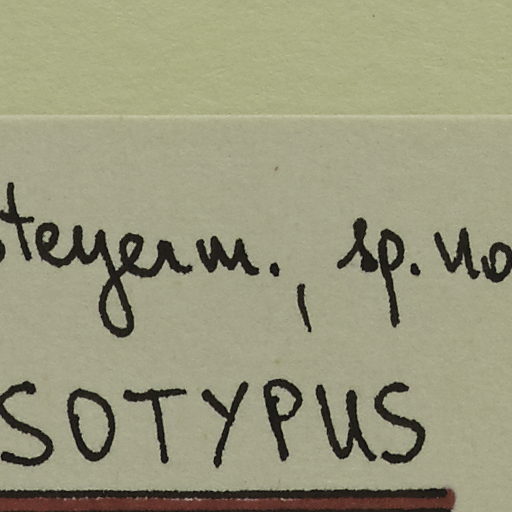 steyerm., sp. no
SOTYPUS